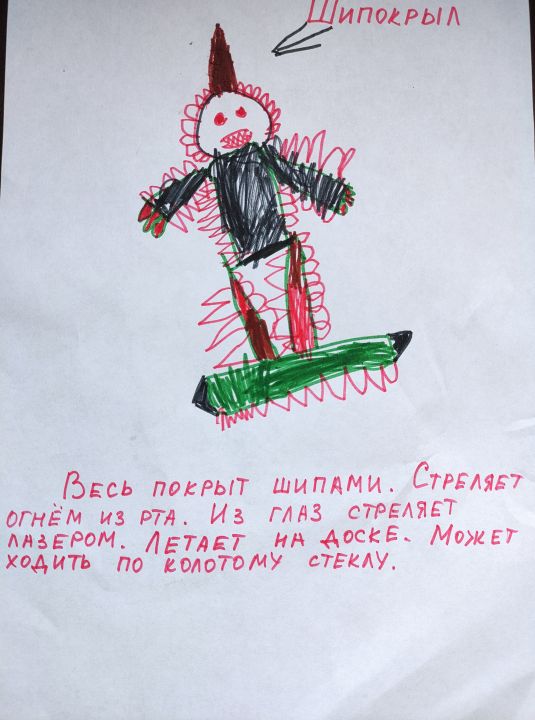 Шипокрыл
Весь покрыт шипами. Стреляет
огнём из рта. Из глаз стреляет
лазером. Летает на доске. Может
ходить по колотому стеклу.